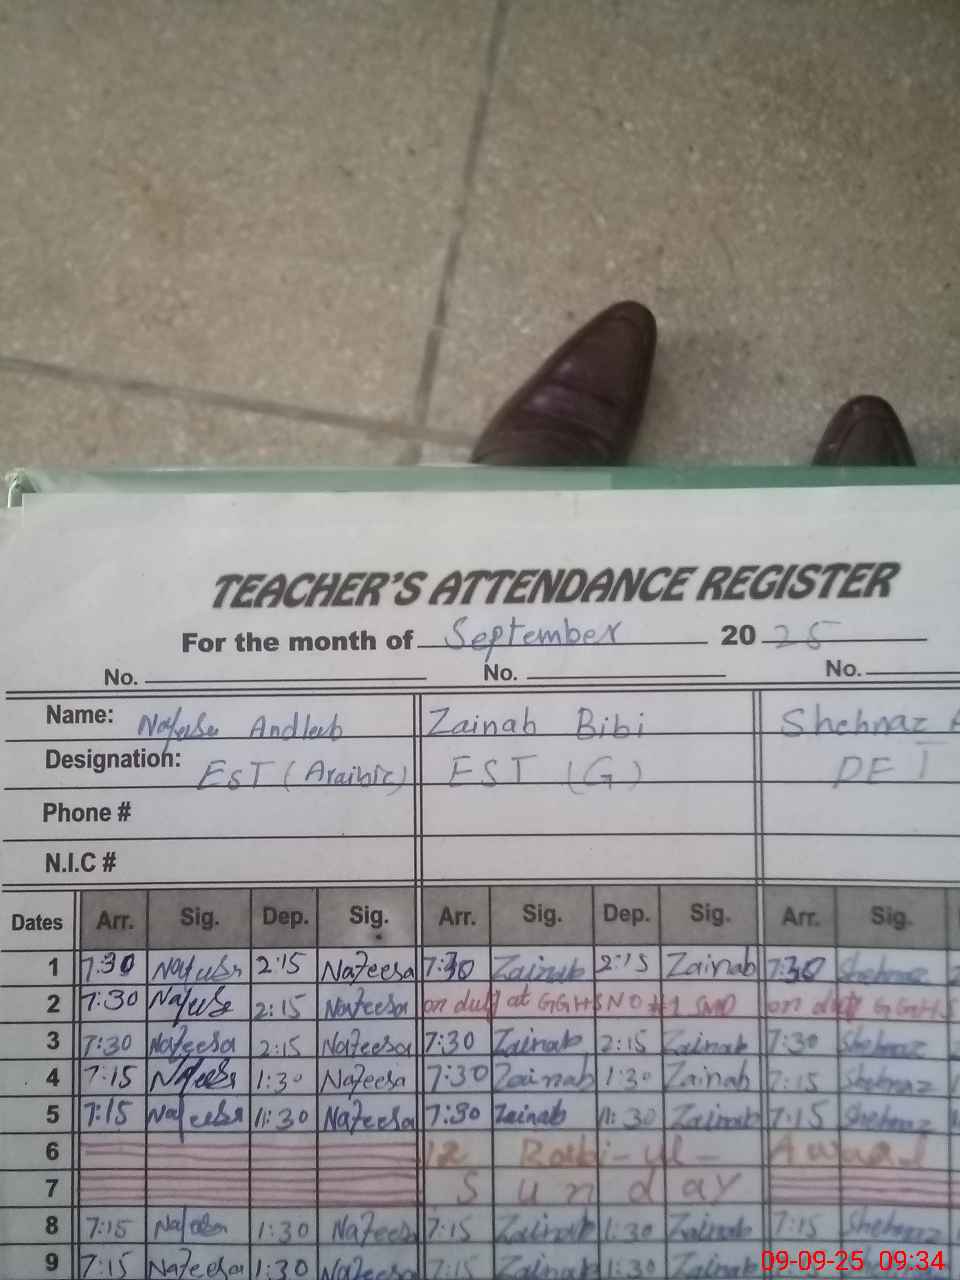 TEACHER'S ATTENDANCE REGISTER
For the month of September 2025
No. No. No.
Name: Nafeesa Andleeb Zainab Bibi Shehnaz
Designation: EST (Araibic) EST (G) PET
Phone #
N.I.C #
Dates Arr. Sig. Dep. Sig. Arr. Sig. Dep. Sig. Arr. Sig.
1 7:30 Nafeesa 2:15 Nafeesa 7:30 Zainab 2:15 Zainab 7:30 Shehnaz
2 7:30 Nafeesa 2:15 Nafeesa on duty at GGHS NO #1 on duty GGHS
3 7:30 Nafeesa 2:15 Nafeesa 7:30 Zainab 2:15 Zainab 7:30 Shehnaz
4 7:15 Nafeesa 1:30 Nafeesa 7:30 Zainab 1:30 Zainab 7:15 Shehnaz
5 7:15 Nafeesa 11:30 Nafeesa 7:30 Zainab 11:30 Zainab 7:15 Shehnaz
6 12 Rabi-ul-Awaal
7 Sunday
8 7:15 Nafeesa 1:30 Nafeesa 7:15 Zainab 1:30 Zainab 7:15 Shehnaz
9 7:15 Nafeesa 1:30 Nafeesa 7:15 Zainab
09-09-25 09:34